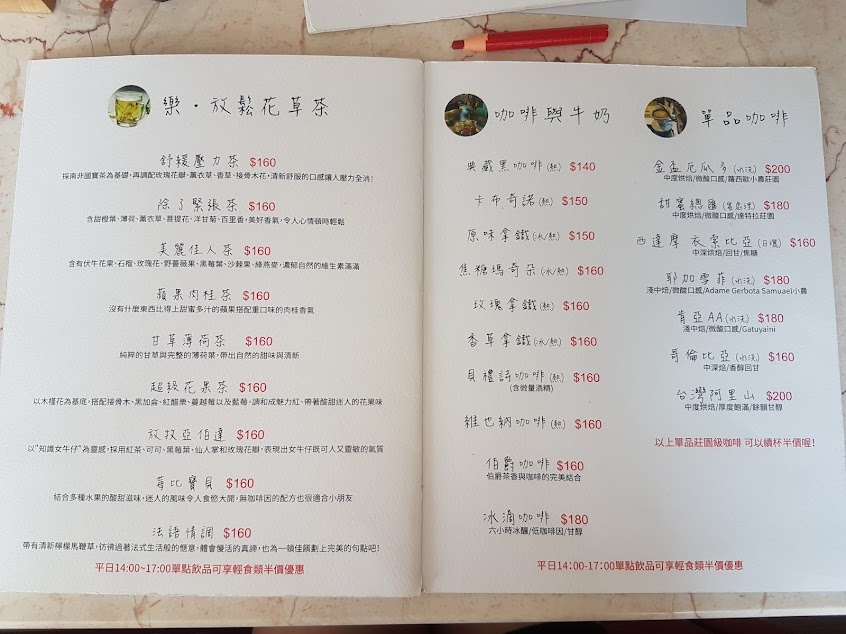 樂・放鬆花草茶
舒緩壓力茶 $160
採南非國寶茶為基礎,再調配玫瑰花瓣、薰衣草、香草、接骨木花,清新舒服的口感讓人壓力全消!
除了緊張茶 $160
含甜橙葉、薄荷、薰衣草、菩提花、洋甘菊、百里香,美好香氣,令人心情頓時輕鬆
美麗佳人茶 $160
含有伏牛花果、石榴、玫瑰花、野薔薇果、黑莓葉、沙棘果、綠燕麥,濃郁自然的維生素滿滿
蘋果肉桂茶 $160
沒有什麼東西比得上甜蜜多汁的蘋果搭配重口味的肉桂香氣
甘草薄荷茶 $160
純粹的甘草與完整的薄荷葉,帶出自然的甜味與清新
超級花果茶 $160
以木槿花為基底,搭配接骨木、黑加侖、紅醋栗、蔓越莓以及藍莓,調和成魅力紅、帶著酸甜迷人的花果味
放牧亞伯達 $160
以"知識女牛仔"為靈感,採用紅茶、可可、黑莓葉、仙人掌和玫瑰花瓣,表現出女牛仔既可人又靈敏的氣質
莓比寶貝 $160
結合多種水果的酸甜滋味,迷人的風味令人食慾大開,無咖啡因的配方也很適合小朋友
法語情調 $160
帶有清新檸檬馬鞭草,彷彿過著法式生活般的愜意,體會慢活的真諦,也為一頓佳餚劃上完美的句點吧!
平日14:00~17:00單點飲品可享輕食類半價優惠
咖啡與牛奶
典藏黑咖啡(熱) $140
卡布奇諾(熱) $150
原味拿鐵(冰/熱) $150
焦糖瑪奇朵(冰/熱) $160
玫瑰拿鐵(熱) $160
香草拿鐵(冰/熱) $160
貝禮詩咖啡(熱) $160
(含微量酒精)
維也納咖啡(熱) $160
伯爵咖啡 $160
伯爵茶香與咖啡的完美結合
冰滴咖啡 $180
六小時冰釀/低咖啡因/甘醇
平日14:00-17:00單點飲品可享輕食類半價優惠
單品咖啡
金盃厄瓜多(水洗) $200
中度烘焙/微酸口感/蘿西歐小農莊園
甜蜜總匯(蜜處理) $180
中度烘焙/微酸口感/達特拉莊園
西達摩 衣索比亞(日曬) $160
中深烘焙/回甘/焦糖
耶加雪菲(水洗) $180
淺中焙/微酸口感/Adame Gerbota Samuaei小農
肯亞AA(水洗) $180
淺中焙/微酸口感/Gatuyaini
哥倫比亞(水洗) $160
中深焙/香醇回甘
台灣阿里山 $200
中度烘焙/厚度飽滿/餘韻甘醇
以上單品莊園級咖啡 可以續杯半價喔!